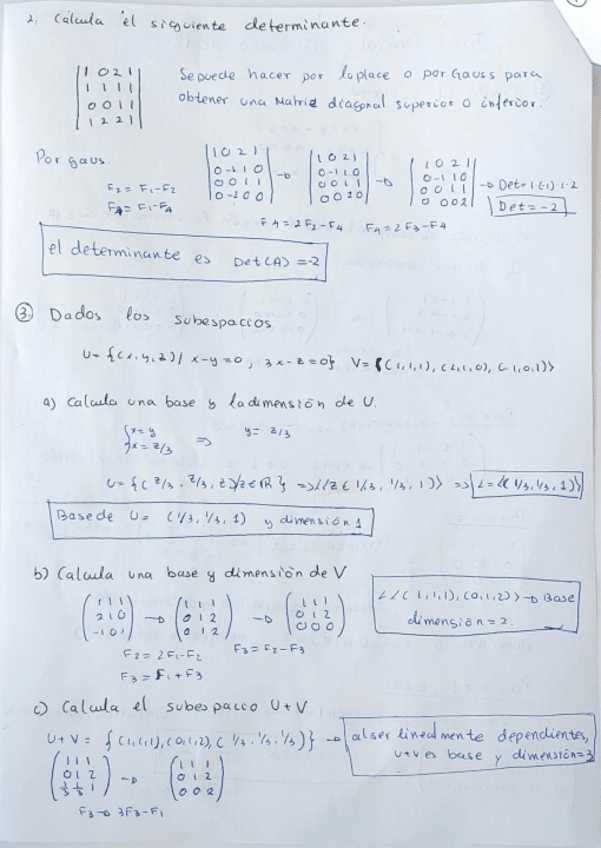 2. Calcula el siguiente determinante.
|1 0 2 1|
|1 1 1 1|
|0 0 1 1|
|1 2 2 1|
Se puede hacer por laplace o por Gauss para
obtener una Matriz diagonal superior o inferior.
Por gaus.
F2 = F1-F2
F4 = F1-F4
|1 0 2 1|
|0 -1 1 0|
|0 0 1 1|
|0 -2 0 0|
→
|1 0 2 1|
|0 -1 1 0|
|0 0 1 1|
|0 0 2 0|
→
|1 0 2 1|
|0 -1 1 0|
|0 0 1 1|
|0 0 0 2|
→ Det = 1·(-1)·1·2
Det = -2
F4 = 2F2-F4 F4 = 2F3-F4
el determinante es Det(A) = -2
③ Dados los subespacios
U = {(x,y,z)/ x-y=0, 3x-z=0} V = {(1,1,1), (2,1,0), (-1,0,1)}
a) Calcula una base y la dimensión de U.
{x=y
{x = z/3
⇒ y = z/3
U = {(z/3, z/3, z)/z∈R} => L{z(1/3, 1/3, 1)} => L = L{(1/3, 1/3, 1)}
Base de U = (1/3, 1/3, 1) y dimensión 1
b) Calcula una base y dimensión de V
(1 1 1)
(2 1 0)
(-1 0 1)
→
(1 1 1)
(0 1 2)
(0 1 2)
→
(1 1 1)
(0 1 2)
(0 0 0)
F2 = 2F1-F2 F3 = F2-F3
F3 = F1+F3
L{(1,1,1), (0,1,2)} → Base
dimensión = 2.
c) Calcula el subespacio U+V
U+V = {(1,1,1), (0,1,2), (1/3, 1/3, 1/3)} → al ser linealmente dependientes,
U+V es base y dimensión=3
(1 1 1)
(0 1 2)
(1/3 1/3 1)
→
(1 1 1)
(0 1 2)
(0 0 2)
F3 → 3F3-F1